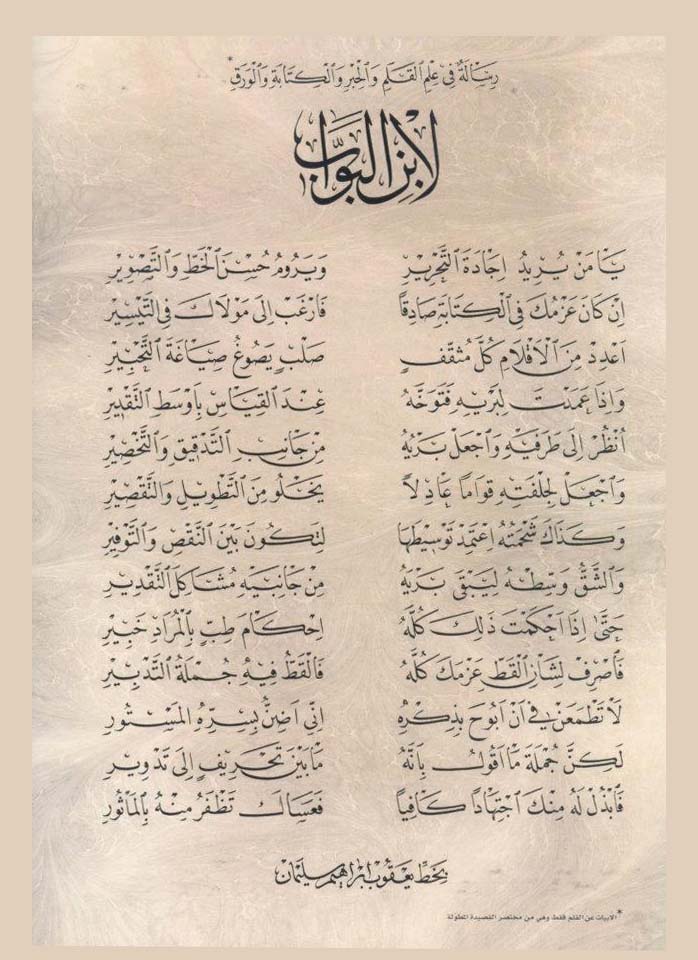 رِسَالَةٌ فِي عِلْمِ الْقَلَمِ وَالْحِبْرِ وَالْكِتَابَةِ وَالْوَرَقِ*
لِابْنِ الْبَوَّابِ
يَا مَنْ يُرِيدُ اِجَادَةَ التَّحْرِيرِ وَيَرُومُ حُسْنَ الْخَطِّ وَالتَّصْوِيرِ
اِنْ كَانَ عَزْمُكَ فِي الْكِتَابَةِ صَادِقًا فَارْغَبْ اِلَى مَوْلَاكَ فِي التَّيْسِيرِ
اَعْدِدْ مِنَ الْاَقْلَامِ كُلَّ مُثَقَّفٍ صَلْبٍ يَصُوغُ صِيَاغَةَ التَّحْبِيرِ
وَاِذَا عَمَدْتَ لِبَرْيِهِ فَتَوَخَّهُ عِنْدَ الْقِيَاسِ بِاَوْسَطِ التَّقْدِيرِ
اُنْظُرْ اِلَى طَرَفَيْهِ وَاجْعَلْ بَرْيَهُ مِنْ جَانِبِ التَّدْقِيقِ وَالتَّخْصِيرِ
وَاجْعَلْ لِجِلْفَتِهِ قِوَامًا عَادِلًا يَخْلُو مِنَ التَّطْوِيلِ وَالتَّقْصِيرِ
وَكَذَاكَ شَحْمَتُهُ اِعْتَمِدْ تَوْسِيطَهَا لِتَكُونَ بَيْنَ النَّقْصِ وَالتَّوْفِيرِ
وَالشَّقُّ وَسِّطْهُ لِيَبْقَى بَرْيُهُ مِنْ جَانِبَيْهِ مُشَاكِلَ التَّقْدِيرِ
حَتَّى اِذَا اَحْكَمْتَ ذَلِكَ كُلَّهُ اِحْكَامَ طِبٍّ بِالْمُرَادِ خَبِيرِ
فَاصْرِفْ لِشَأْنِ الْقَطِّ عَزْمَكَ كُلَّهُ فَالْقَطُّ فِيهِ جُمْلَةُ التَّدْبِيرِ
لَا تَطْمَعَنْ فِي اَنْ اَبُوحَ بِذِكْرِهِ اِنِّي اَضِنُّ بِسِرِّهِ الْمَسْتُورِ
لَكِنَّ جُمْلَةَ مَا اَقُولُ بِاَنَّهُ مَا بَيْنَ تَحْرِيفٍ اِلَى تَدْوِيرِ
فَابْذُلْ لَهُ مِنْكَ اجْتِهَادًا كَافِيًا فَعَسَاكَ تَظْفَرُ مِنْهُ بِالْمَأْثُورِ
بخط يعقوب ابراهيم سليمان
*الابيات عن القلم فقط وهي من مختصر القصيدة المطولة